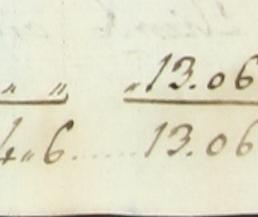 " " " 13.06
4 " 6 ...... 13.06